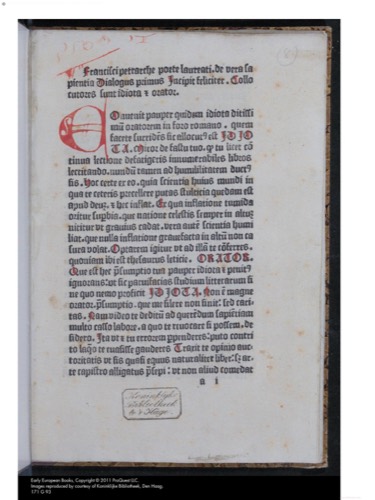 Francisci petrarche poete laureati. de vera sa
pientia Dialogus primus Incipit feliciter. Collo
cutores sunt idiota & orator.
Conuenit pauper quidam idiota ditissi
mū oratorem in foro romano. quem
facete surridēs sic allocut' est IDIO
TA. Miror de fastu tuo. ꝙ tu licet cō
tinua lectione defatigeris innumerabiles libros
lectitando. nundū tamen ad humilitatem duct'
sis. Hoc certe ex eo. quia scientia huius mundi in
qua te ceteris precellere putas stulticia quedam est
apud deuȝ. & hec inflat. Ex qua inflatione tumida
oritur supbia. que natione celestis semper in altuȝ
nititur ut grauius cadat. vera autē scientia humi
liat. que nulla inflatione grauefacta in altū non ca
sura volat. Optarem igitur ut ad illā te cōferres.
quoniam ibi est thesaurus leticie. ORATOR.
Que est hec p̄sumptio tua pauper idiota & penit'
ignorans: ut sic paruifacias studium litterarum si
ne quo nemo proficit IDIOTA. Non ē magne
orator. p̄sumptio. que me silere non sinit: sed cari
tas. Nam video te deditū ad querēdum sapiētiam
multo casso labore. a quo te reuocare si possem. de
sidero. Ita ut & tu errorem ppenderes: puto contri
to laqᵒ te euasisse gauderes Traxit te opinio auc
toritatis ut sis quasi equus naturaliter liber: sȝ ar
te capistro alligatus p̄sepi: ubi non aliud comedat
a i
Koninklijke
Bibliotheek
te 's Hage.
Early European Books, Copyright © 2011 ProQuest LLC.
Images reproduced by courtesy of Koninklijke Bibliotheek, Den Haag.
171 G 95